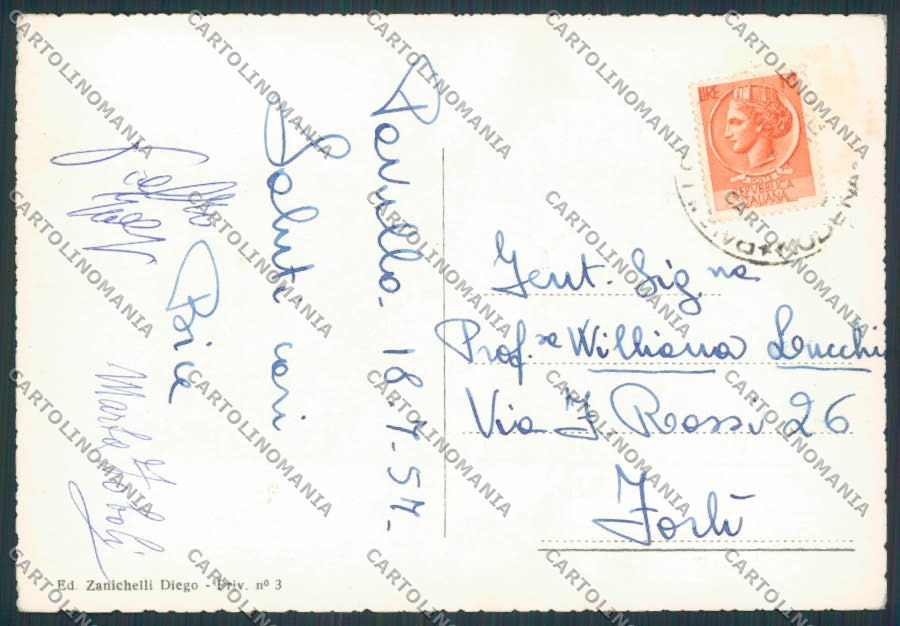 Pavullo. 18.7.54.
Saluti cari
Bice
Gent. Sig.na
Prof.ssa Williana Lucchi
Via F Rossi 26
Forlì
LIRE 10
POSTE
REPVBBLICA
ITALIANA
MODENA
Ed. Zanichelli Diego - Priv. nº 3
CARTOLINOMANIA